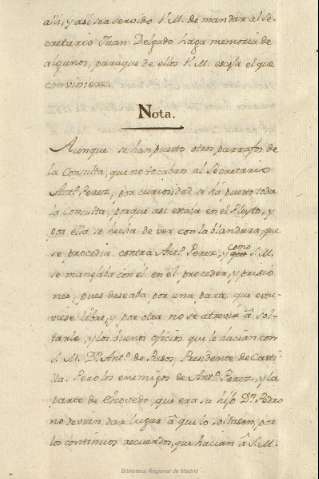 assi, y assi sea servido V.M. de mandar al Se-
cretario Juan Delgado haga memoria de
algunos, paraque de ellos V.M. escoja el que
conviniere.
Nota.
Aunque se han puesto otros parrafos de
la Consulta, que no tocaban al Secretario
Antº. Perez, por curiosidad se há puesto toda
la Consulta, porque asi estaba en el Pleyto, y
por ella se hecha de ver con la blandura, que
se procedia contra Antº. Perez, y como S.M.
se mançaba con él en el proceder, y prisio-
nes, pues deseaba por una parte que estu-
viese libre, y por otra no se atrevia â sol-
tarle, y los buenos oficios que le hacian con
S.M. Dn. Antº. de Pazos, Presidente de Casti-
lla. Pero los enemigos de Antº. Perez, y la
parte de Escovedo, que era su hijo Dn. Pedro
no devian dar lugar â que lo soltasen, por
los continuos recuerdos, que hacian â S.M.
Biblioteca Regional de Madrid